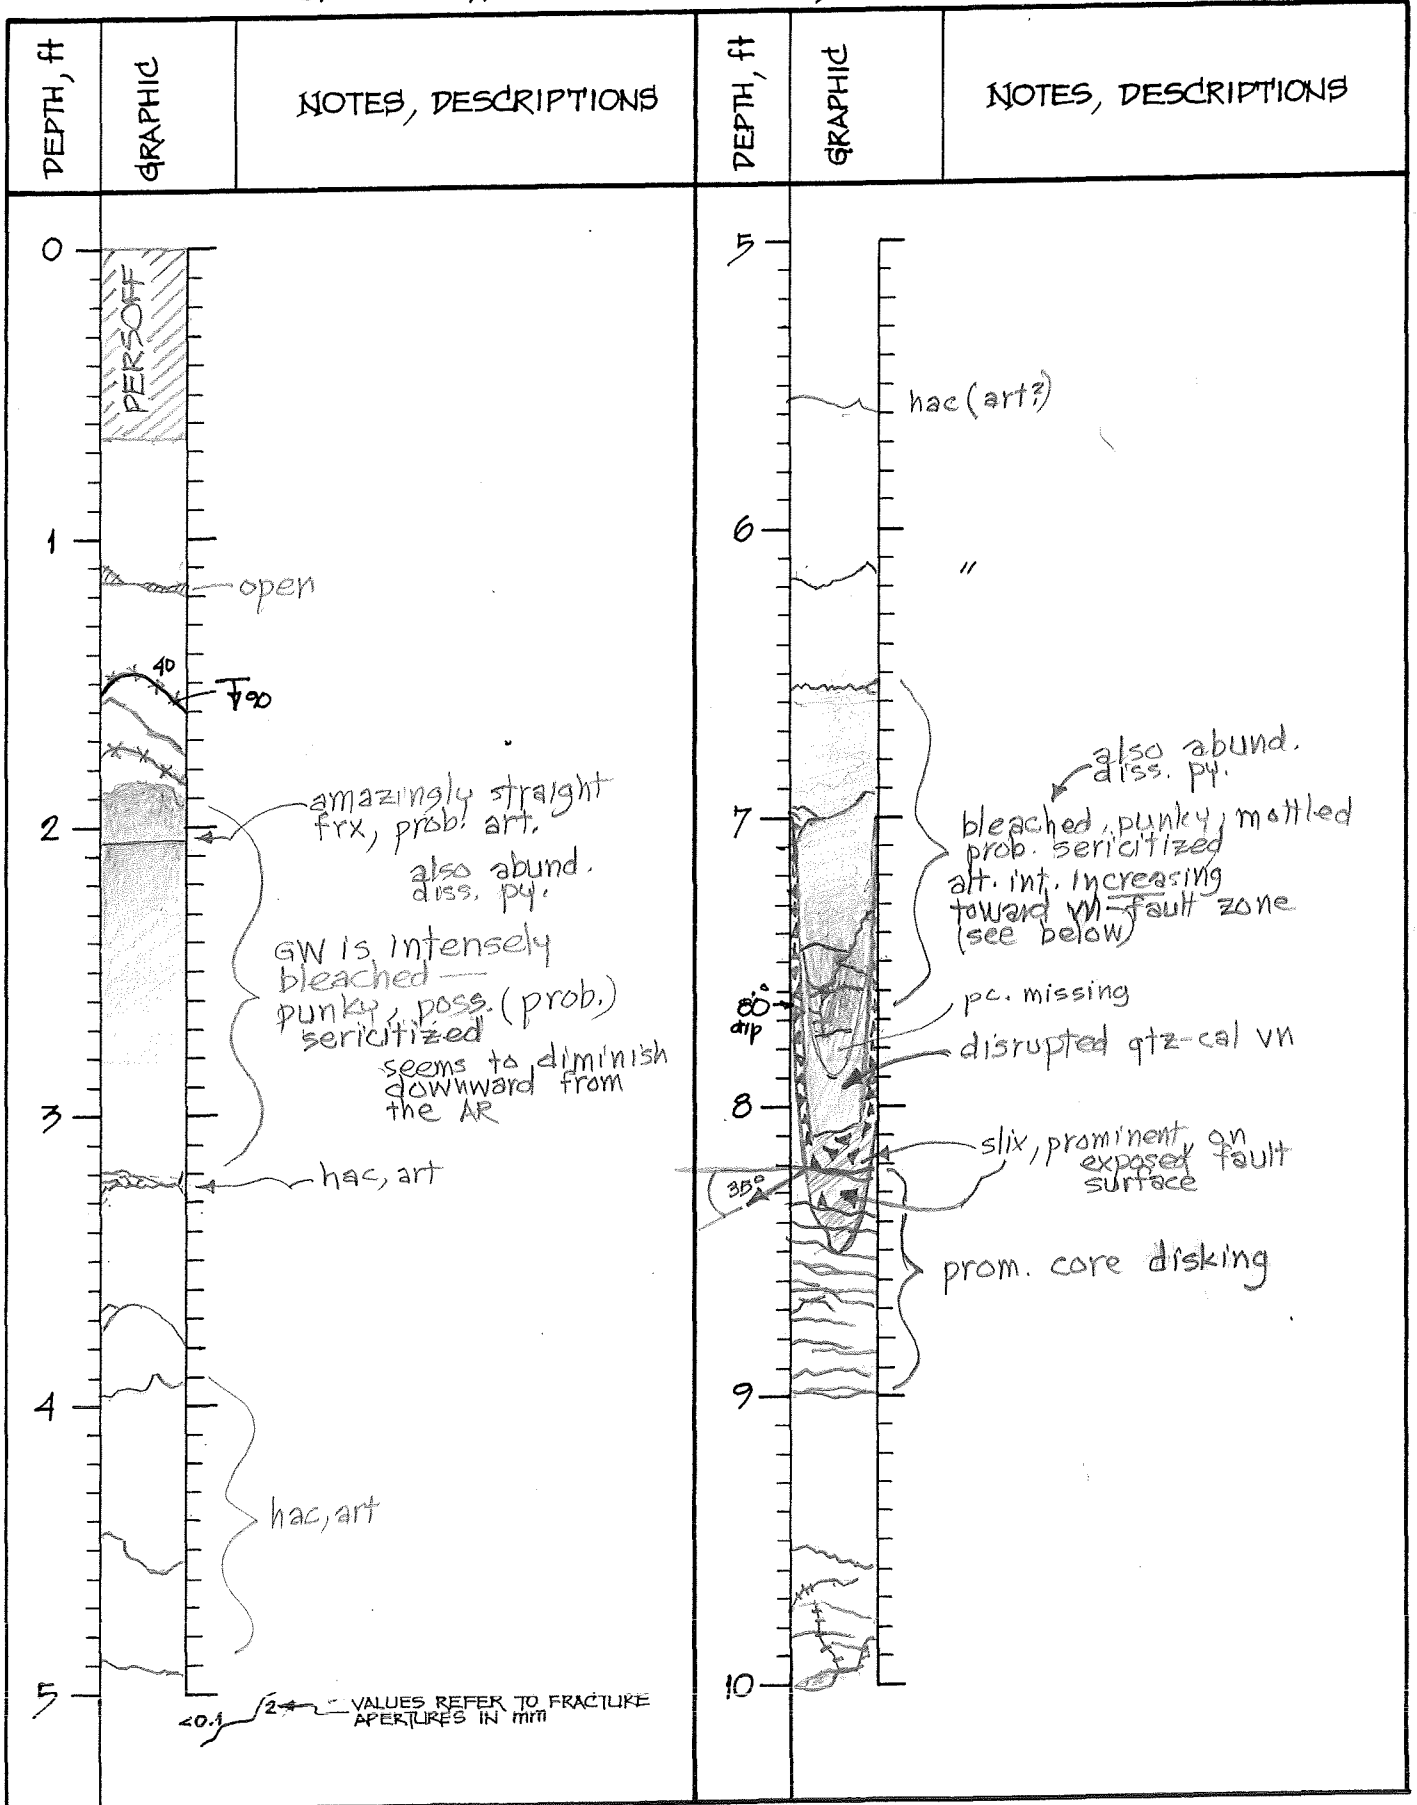 DEPTH, ft
GRAPHIC
NOTES, DESCRIPTIONS
0
PERSOFF
1
open
40
90
2
amazingly straight
frx, prob. art.
also abund.
diss. py.
GW is intensely
bleached —
punky, poss. (prob.)
sericitized
seems to diminish
downward from
the AR
3
hac, art
4
hac, art
5
<0.1
2
VALUES REFER TO FRACTURE
APERTURES IN mm
DEPTH, ft
GRAPHIC
NOTES, DESCRIPTIONS
5
hac (art?)
6
"
also abund.
diss. py.
7
bleached, punky, mottled
prob. sericitized
alt. int. increasing
toward vn-fault zone
(see below)
80°
dip
pc. missing
disrupted qtz-cal vn
8
slix, prominent on
exposed fault
surface
35°
prom. core disking
9
10